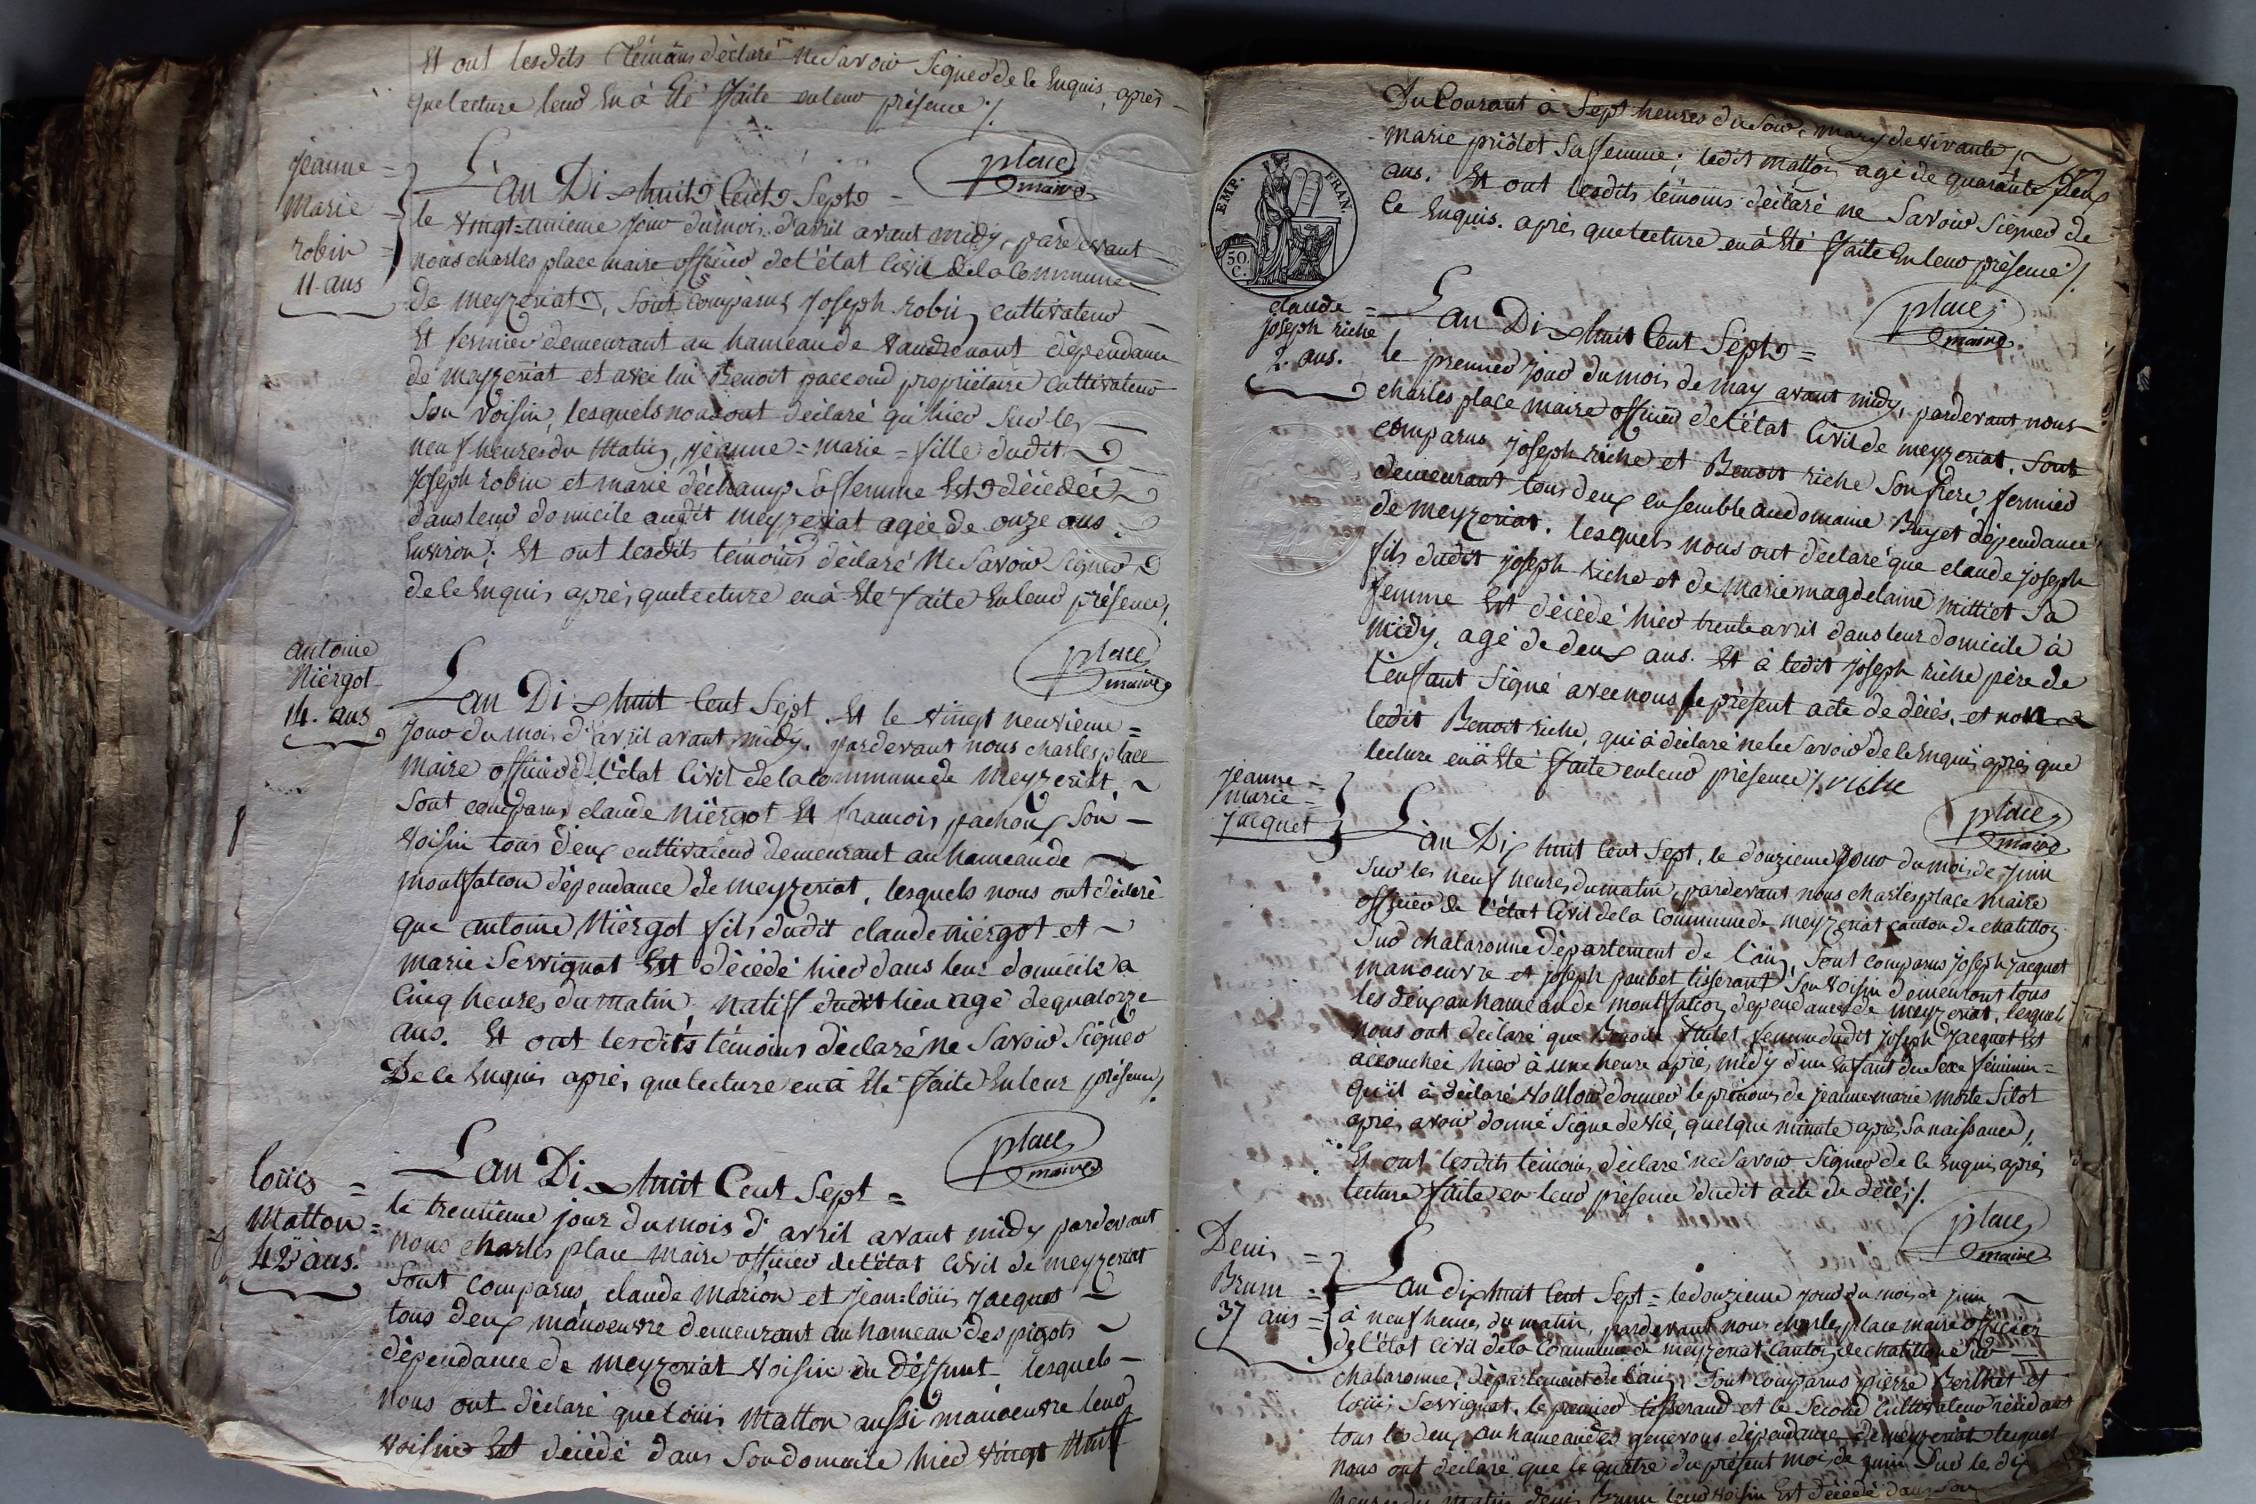 Et ont lesdits témoins déclaré ne Savoir Signer de ce Enquis, après
que lecture leur En à Eté ffaite en leur présence ./.
place
maire
jeanne =
marie =
robin =
11. ans
L'an Dix huit Cent Sept =
le vingt-unieme jour du mois d'avril avant midy, pardevant
nous charles place maire officier de l'état Civil de la Commune
De meyzeriat, Sont comparus Joseph robin cultivateur
Et fermier demeurant au hameau de dépendance
de meyzeriat et avec lui Benoit paccoud propriétaire Cultivateur
Son voisin, lesquels nous ont déclaré qu'hier Sur les
neuf heures du Matin, jeanne = marie = fille dudit
Joseph robin et marie déchamp Sa ffemme Est décédée
dans leur domicile audit meyzeriat agée de onze ans
Environ; Et ont lesdits témoins déclaré ne Savoir Signer
de ce Enquis après que lecture en à Eté ffaite En leur présence.
place
maire
antoine
Niérgot
14. ans
L'an Dix huit Cent Sept Et le vingt neuvième =
Jour du mois d'avril avant midy. pardevant nous charles place
Maire officier de l'état Civil de la commune de Meyzeriat.
Sont comparus claude Niérgot Et francois pachoux Son
voisin tous deux cultivateur demeurant au hameau de
montfalcon dépendance de meyzeriat, lesquels nous ont déclaré
que antoine Niérgot fils dudit claude niérgot et
marie Servignat Est décédé hier dans leur domicile a
Cinq heures du matin, natiff dudit lieu agé de quatorze
ans. Et ont lesdits témoins déclaré Ne Savoir Signer
De ce Enquis après que lecture en à Eté ffaite En leur présence ./.
place
maire
loüis =
Matton =
42 ans.
L'an Dix huit Cent Sept =
le trentième jour du mois d'avril avant midy pardevant
nous charles place maire officier de l'état Civil de meyzeriat
Sont comparus claude marion et jean=loüis jacquet
tous deux manoeuvre demeurant au hameau des pigots
dépendance de meyzeriat voisin du déffunt lesquels
nous ont déclaré que loüis Matton aussi manoeuvre leur
voisin Est décédé dans Son domicile hier vingt Neuff
Du Courant à Sept heures du Soir, mary de vivante
marie Sa ffemme; ledit matton agé de quarante deux
ans. Et ont lesdits témoins déclaré ne Savoir Signer de
Ce Enquis. après que lecture en à Eté ffaite En leur présence ./.
EMP. FRAN.
50.
C.
place
maire
claude =
joseph riche
2. ans.
L'an Dix huit Cent Sept =
le premier jour du mois de may avant midy, pardevant nous
charles place maire officier de l'état Civil de meyzeriat. Sont
comparus joseph riche et Benoit riche Son frère, fermier
demeurant tous deux ensemble au domaine Buyet dépendance
de meyzeriat. lesquels nous ont déclaré que claude joseph
fils dudit joseph riche et de Marie magdelaine milliet Sa
femme Est décédé hier trente avril dans leur domicile à
midy, agé de deux ans. Et à ledit joseph riche père de
l'enfant Signé avec nous le présent acte de décés, et non
ledit Benoit riche, qui à déclaré ne le Savoir de ce Enquis après que
lecture en à Eté ffaite en leur présence ./. riche
place
maire
jeanne =
marie =
jacquet
L'an Dix huit Cent Sept, le douzieme jour du mois de juin
Sur les neuf heures du matin, pardevant nous charles place Maire
officier de l'état Civil de la Commune de meyzeriat canton de chatillon
Sur chalaronne département de l'ain, Sont comparus joseph jacquet
manoeuvre et joseph tisserant Son voisin demeurant tous
les deux au hameau de montfalcon dépendance de meyzeriat. lesquels
nous ont déclaré que Benoite femme dudit joseph jacquet Est
accouchée hier à une heure après midy d'un Enfant du Sexe féminin =
qu'il à déclaré vouloir donner le prénoms de jeanne marie morte Sitot
après avoir donné Signe de vie, quelque minute après Sa naissance,
Et ont lesdits témoins déclaré ne Savoir Signer de ce Enquis après
lecture faite en leur présence dudit acte de décés ./.
place
maire
Denis =
Brunn =
37 ans =
L'an dix huit Cent Sept = le douzieme jour du mois de juin
à neuf heures du matin, pardevant nous charles place maire officier
de l'état Civil de la Commune de meyzeriat Canton de chatillon Sur
chalaronne, département de l'ain, Sont comparus pierre Berthet et
loüis Servignat, le premier tisserand et le Second Cultivateur résidant
tous les deux au hameau des dépendance de meyzeriat lesquels
nous ont déclaré que le quatre du présent mois de juin Sur les dix
heures du Matin denis Brunn leur voisin Est décédé dans Son